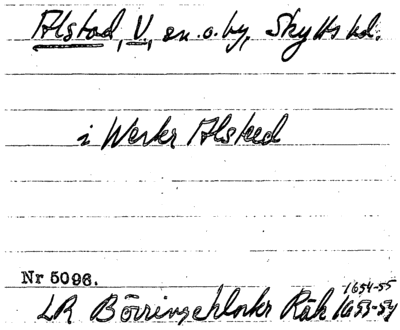 Alstad, V, sn. o. by, Skytts hd.
i Werkr Alsted
Nr 5096.
LR Börringeklockr Räk 1653-54
1654-55